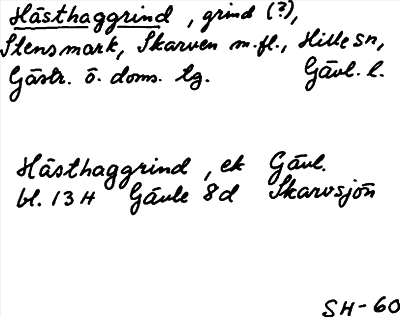 Hästhaggrind, grind (?),
Stensmark, Skarven m.fl., Hille sn,
Gästr. ö. doms. tg. Gävl. l.
Hästhaggrind, ek Gävl.
bl. 13H Gävle 8d Skarvsjön
SH-60